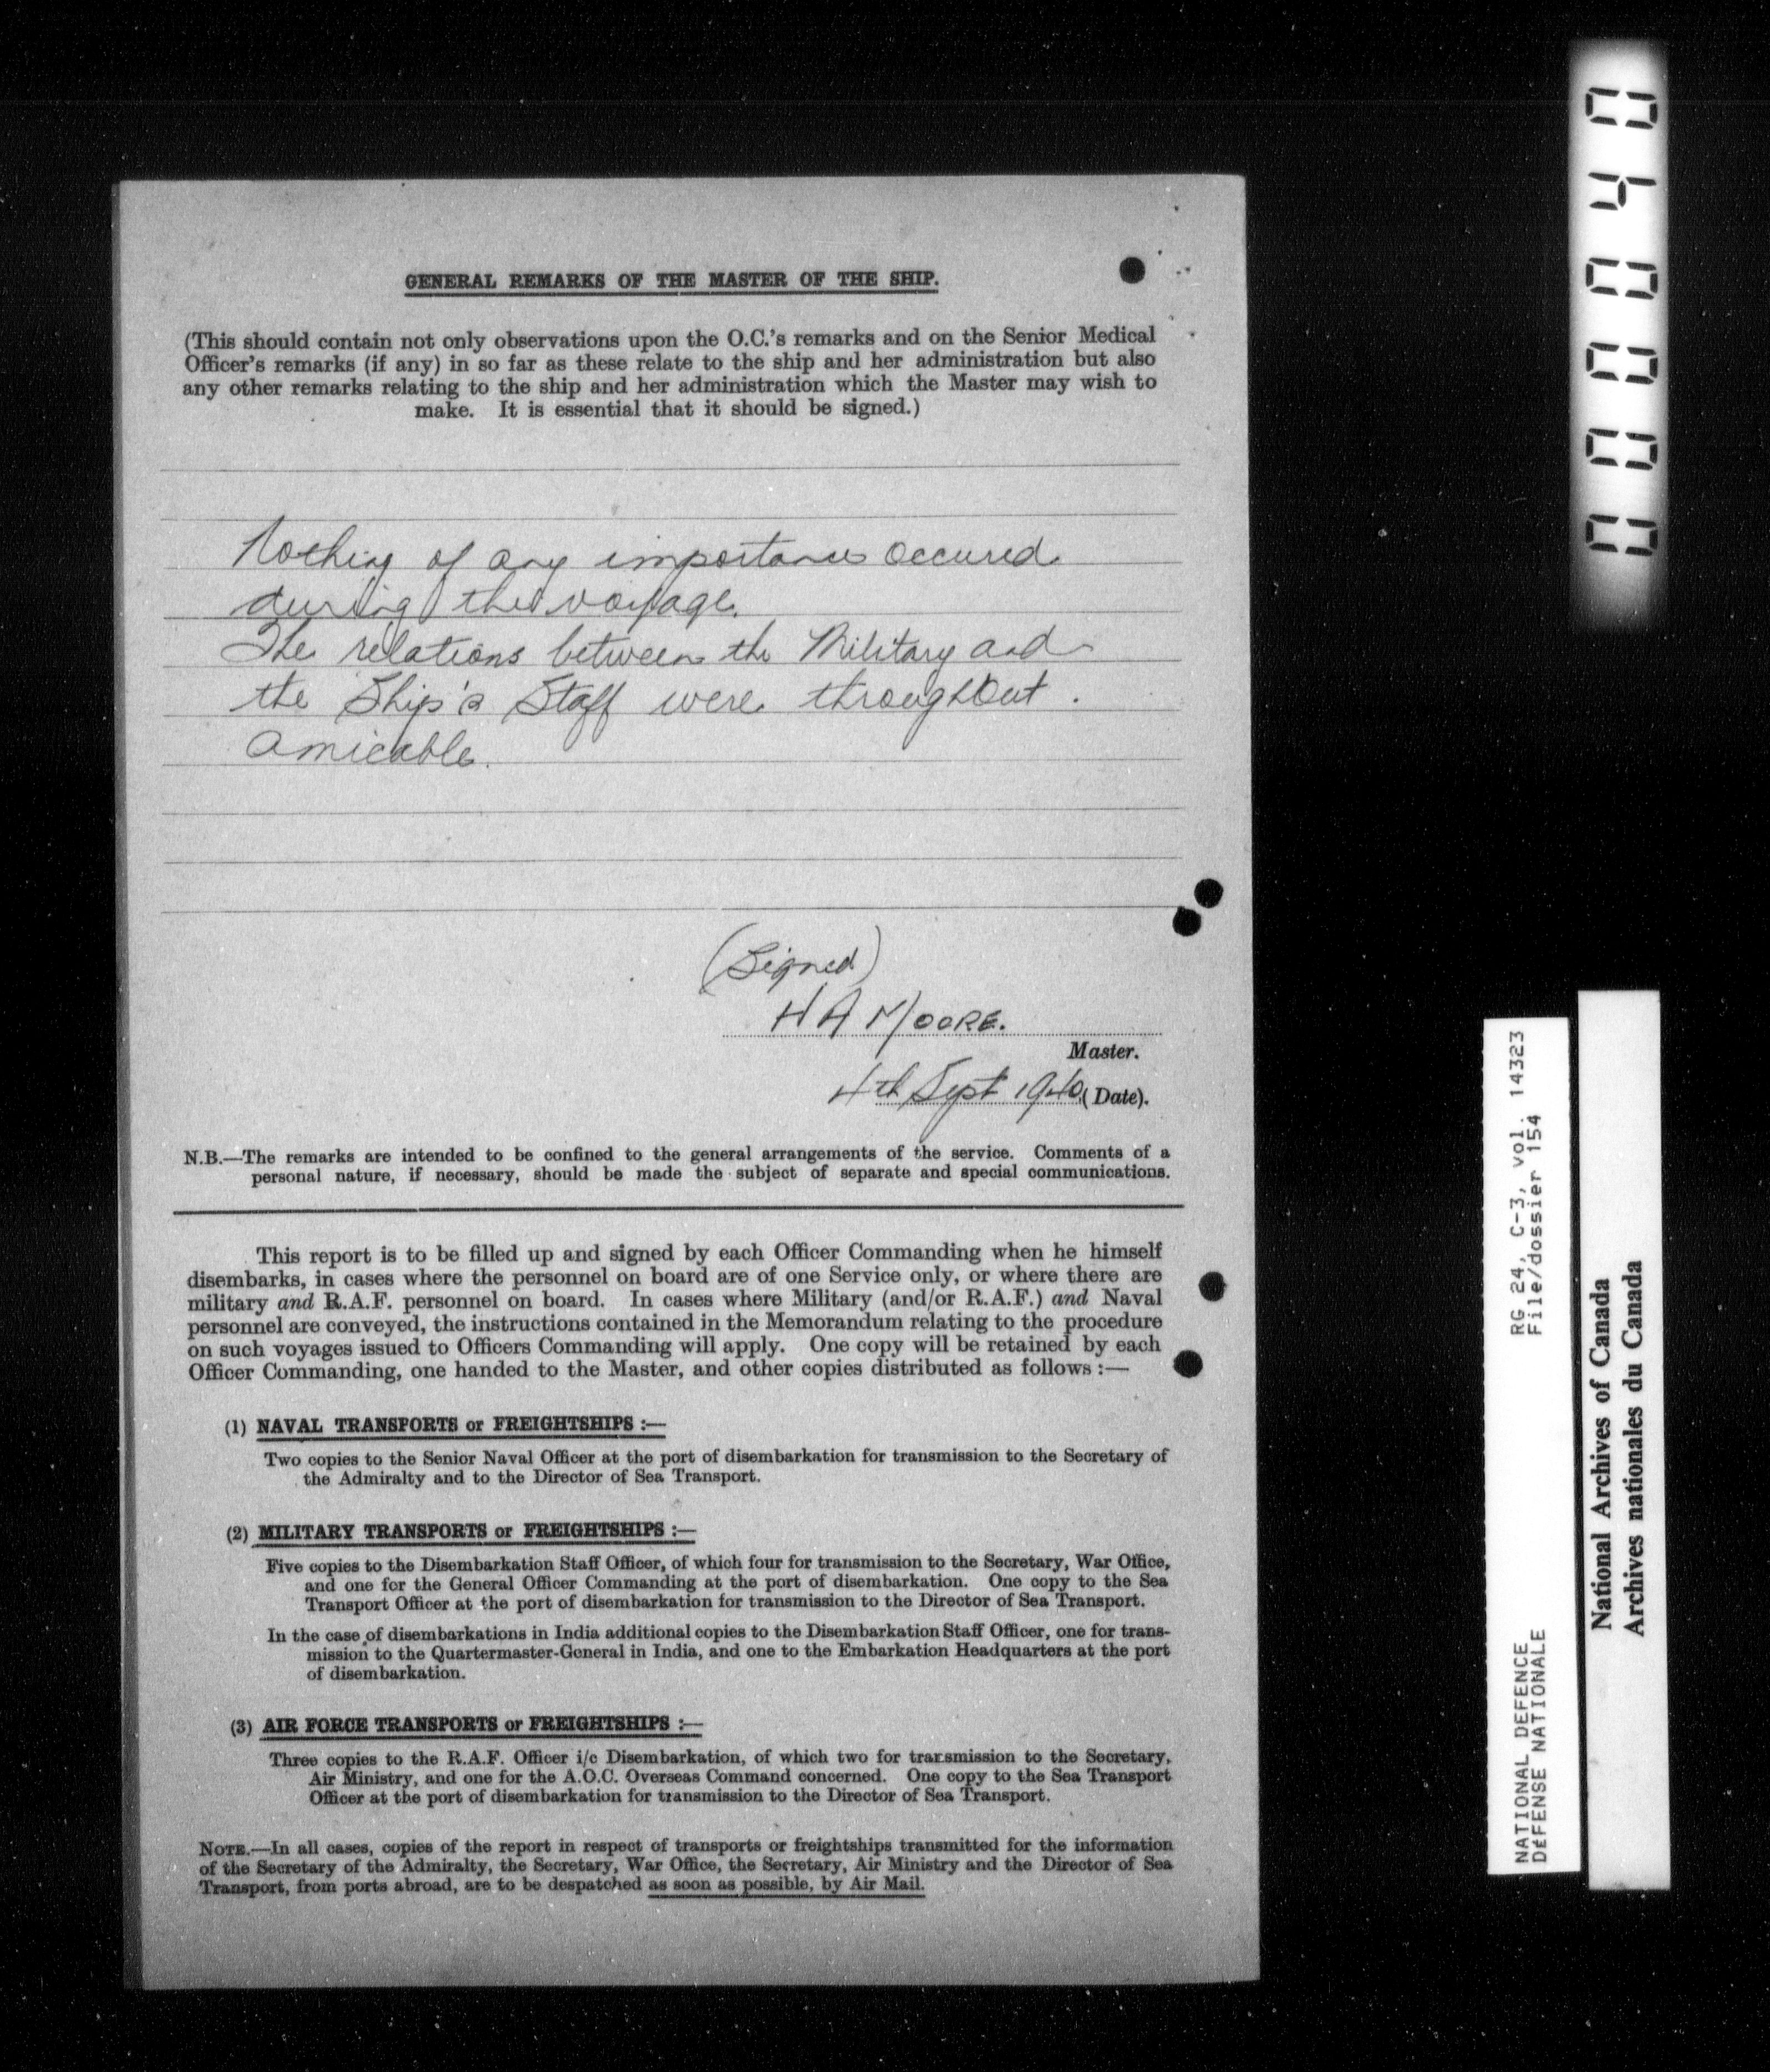 GENERAL REMARKS OF THE MASTER OF THE SHIP.
(This should contain not only observations upon the O.C.'s remarks and on the Senior Medical
Officer's remarks (if any) in so far as these relate to the ship and her administration but also
any other remarks relating to the ship and her administration which the Master may wish to
make. It is essential that it should be signed.)
Nothing of any importance occured
during the voyage.
The relations between the Military and
the Ship's Staff were throughout
amicable.
(Signed)
H A MOORE.
Master.
4th Sept 1940 (Date).
N.B.—The remarks are intended to be confined to the general arrangements of the service. Comments of a
personal nature, if necessary, should be made the subject of separate and special communications.
This report is to be filled up and signed by each Officer Commanding when he himself
disembarks, in cases where the personnel on board are of one Service only, or where there are
military and R.A.F. personnel on board. In cases where Military (and/or R.A.F.) and Naval
personnel are conveyed, the instructions contained in the Memorandum relating to the procedure
on such voyages issued to Officers Commanding will apply. One copy will be retained by each
Officer Commanding, one handed to the Master, and other copies distributed as follows :—
(1) NAVAL TRANSPORTS or FREIGHTSHIPS :—
Two copies to the Senior Naval Officer at the port of disembarkation for transmission to the Secretary of
the Admiralty and to the Director of Sea Transport.
(2) MILITARY TRANSPORTS or FREIGHTSHIPS :—
Five copies to the Disembarkation Staff Officer, of which four for transmission to the Secretary, War Office,
and one for the General Officer Commanding at the port of disembarkation. One copy to the Sea
Transport Officer at the port of disembarkation for transmission to the Director of Sea Transport.
In the case of disembarkations in India additional copies to the Disembarkation Staff Officer, one for trans-
mission to the Quartermaster-General in India, and one to the Embarkation Headquarters at the port
of disembarkation.
(3) AIR FORCE TRANSPORTS or FREIGHTSHIPS :—
Three copies to the R.A.F. Officer i/c Disembarkation, of which two for transmission to the Secretary,
Air Ministry, and one for the A.O.C. Overseas Command concerned. One copy to the Sea Transport
Officer at the port of disembarkation for transmission to the Director of Sea Transport.
NOTE.—In all cases, copies of the report in respect of transports or freightships transmitted for the information
of the Secretary of the Admiralty, the Secretary, War Office, the Secretary, Air Ministry and the Director of Sea
Transport, from ports abroad, are to be despatched as soon as possible, by Air Mail.
000040
NATIONAL DEFENCE RG 24, C-3, vol. 14323
DÉFENSE NATIONALE File/dossier 154
National Archives of Canada
Archives nationales du Canada